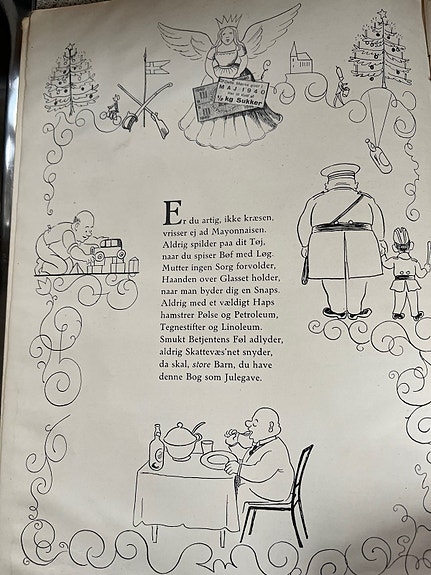 MAJ 1940
½ kg Sukker
Er du artig, ikke kræsen,
vrisser ej ad Mayonnaisen.
Aldrig spilder paa dit Tøj,
naar du spiser Bøf med Løg.
Mutter ingen Sorg forvolder,
Haanden over Glasset holder,
naar man byder dig en Snaps.
Aldrig med et vældigt Haps
hamstrer Pølse og Petroleum,
Tegnestifter og Linoleum.
Smukt Betjentens Føl adlyder,
aldrig Skattevæs'net snyder,
da skal, store Barn, du have
denne Bog som Julegave.